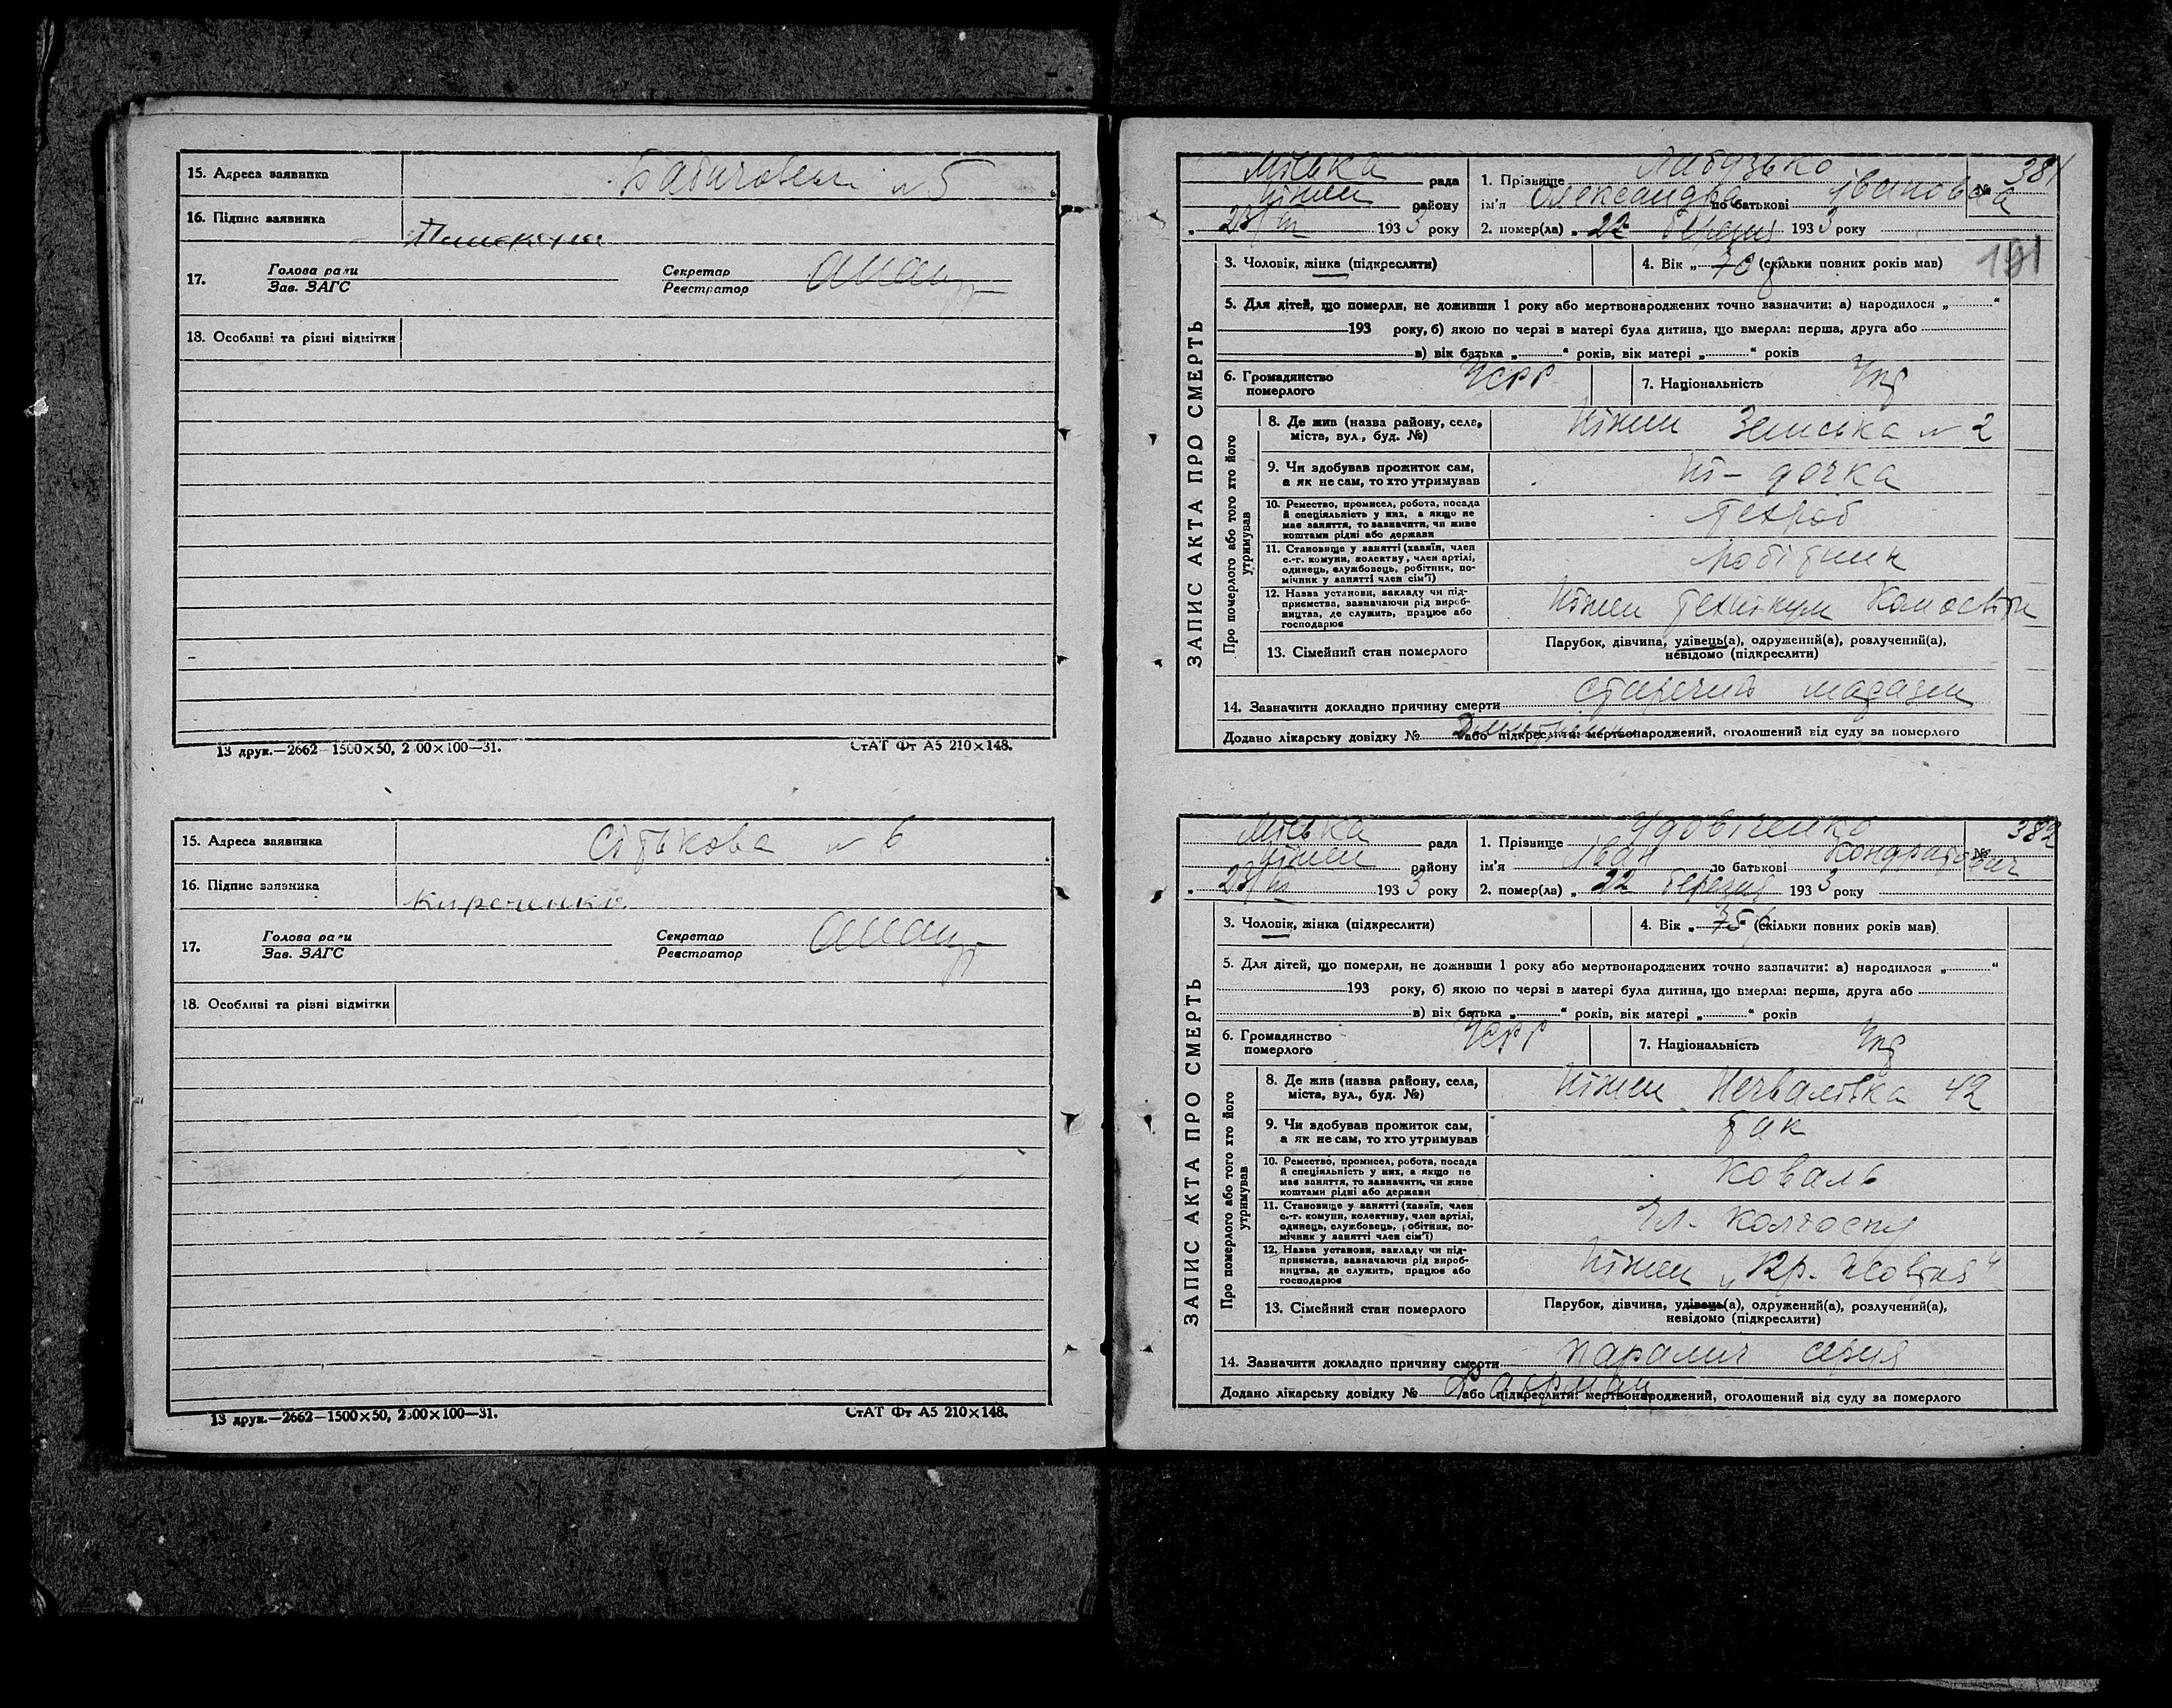 15. Адреса заявника № 5
16. Підпис заявника
17. Голова ради Секретар
Зав. ЗАГС Реєстратор
18. Особливі та різні відмітки
13 друк.—2662—1500×50, 2500×100—31. СтАТ Фт А5 210×148.
15. Адреса заявника Сітькова № 6
16. Підпис заявника Кириченко
17. Голова ради Секретар
Зав. ЗАГС Реєстратор
18. Особливі та різні відмітки
13 друк.—2662—1500×50, 2500×100—31. СтАТ Фт А5 210×148.
ЗАПИС АКТА ПРО СМЕРТЬ
Міська рада 1. Прізвище Либузько № 381
Ніжен району ім'я Олександра по батькові Івановна
„ 23/III 1933 року 2. помер(ла) „ 22 березня 1933 року
3. Чоловік, жінка (підкреслити) 4. Вік „ 70 (скільки повних років мав) 191
5. Для дітей, що померли, не доживши 1 року або мертвонароджених точно зазначити: а) народилося „ “
193 року, б) якою по черзі в матері була дитина, що вмерла: перша, друга або
в) вік батька „ “ років, вік матері „ “ років
6. Громадянство УСРР 7. Національність Укр
померлого
Про померлого або того хто його утримував
8. Де жив (назва району, села, Ніжен Земська № 2
міста, вул., буд. №)
9. Чи здобував прожиток сам, Ні — дочка
а як не сам, то хто утримував
10. Ремество, промисел, робота, посада Техроб
й спеціяльність у них, а якщо не
має заняття, то зазначити, чи живе
коштами рідні або держави
11. Становище у занятті (хазяїн, член Робітник
с.-г. комуни, колективу, член артілі,
одинець, службовець, робітник, по-
мічник у занятті член сім'ї)
12. Назва установи, закладу чи під- Ніжен технікум
приємства, зазначаючи рід вироб-
ництва, де служить, працює або
господарює
13. Сімейний стан померлого Парубок, дівчина, удівець(а), одружений(а), розлучений(а),
невідомо (підкреслити)
14. Зазначити докладно причину смерти старечий маразм
Додано лікарську довідку № або підкреслити: мертвонароджений, оголошений від суду за померлого
ЗАПИС АКТА ПРО СМЕРТЬ
Міська рада 1. Прізвище Удовіченко № 382
Ніжен району ім'я Іван по батькові Кондратович
„ 23/III 1933 року 2. помер(ла) „ 22 березня 1933 року
3. Чоловік, жінка (підкреслити) 4. Вік „ 75 (скільки повних років мав)
5. Для дітей, що померли, не доживши 1 року або мертвонароджених точно зазначити: а) народилося „ “
193 року, б) якою по черзі в матері була дитина, що вмерла: перша, друга або
в) вік батька „ “ років, вік матері „ “ років
6. Громадянство УСРР 7. Національність Укр
померлого
Про померлого або того хто його утримував
8. Де жив (назва району, села, Ніжен Мечвалівка 42
міста, вул., буд. №)
9. Чи здобував прожиток сам, так
а як не сам, то хто утримував
10. Ремество, промисел, робота, посада Коваль
й спеціяльність у них, а якщо не
має заняття, то зазначити, чи живе
коштами рідні або держави
11. Становище у занятті (хазяїн, член Чл. колгоспу
с.-г. комуни, колективу, член артілі,
одинець, службовець, робітник, по-
мічник у занятті член сім'ї)
12. Назва установи, закладу чи під- Ніжен „Кр. Жовтня“
приємства, зазначаючи рід вироб-
ництва, де служить, працює або
господарює
13. Сімейний стан померлого Парубок, дівчина, удівець(а), одружений(а), розлучений(а),
невідомо (підкреслити)
14. Зазначити докладно причину смерти параліч серця
Додано лікарську довідку № або підкреслити: мертвонароджений, оголошений від суду за померлого